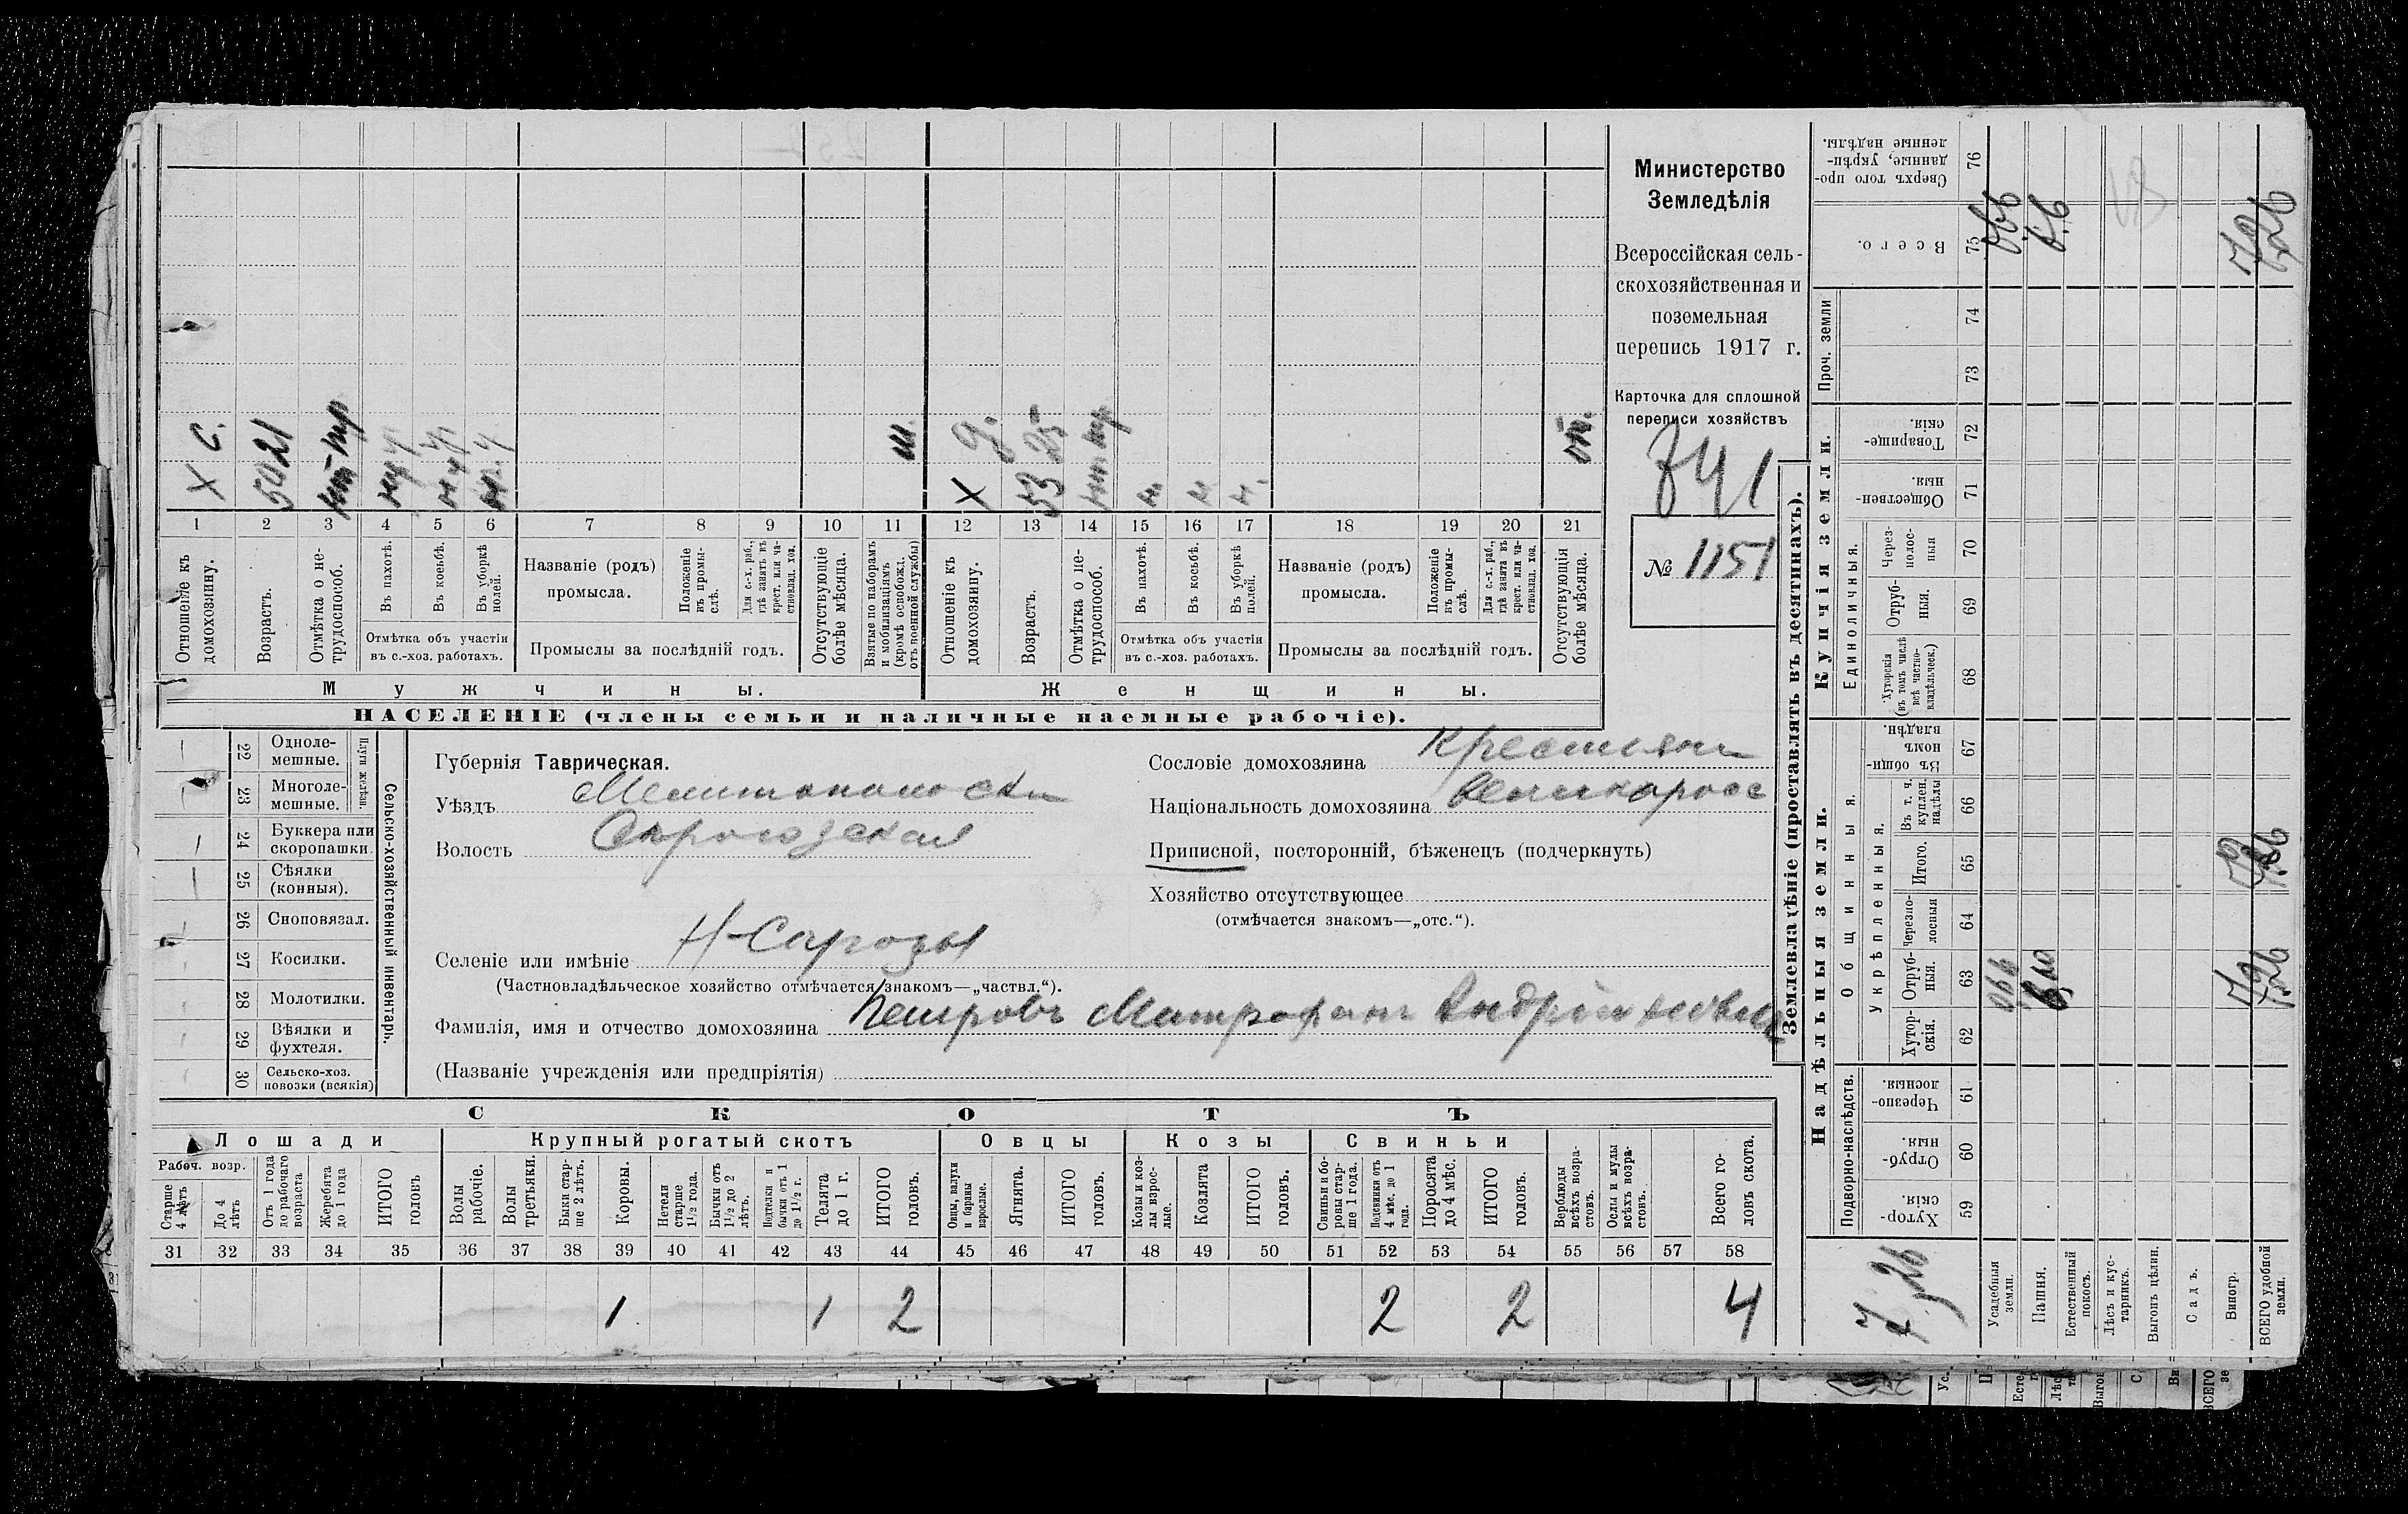 Министерство
Земледѣлія
Всероссійская сель-
скохозяйственная и
поземельная
перепись 1917 г.
Карточка для сплошной
переписи хозяйствъ
№ 1151
X с.
50 21
X д.
53 25
1 2 3 4 5 6 7 8 9 10 11 12 13 14 15 16 17 18 19 20 21
Отношеніе къ домохозяину.
Возрастъ.
Отмѣтка о не-трудоспособ.
Въ пахотѣ.
Въ косьбѣ.
Въ уборкѣ полей.
Отмѣтка объ участіи
въ с.-хоз. работахъ.
Названіе (родъ)
промысла.
Положеніе въ промы-слѣ.
Для с.-х. раб., гдѣ занятъ въ крест. или ча-стновлад. хоз.
Промыслы за послѣдній годъ.
Отсутствующіе болѣе мѣсяца.
Взятые по наборамъ и мобилизаціямъ (кромѣ освобожд. отъ военной службы)
Отношеніе къ домохозяину.
Возрастъ.
Отмѣтка о не-трудоспособ.
Въ пахотѣ.
Въ косьбѣ.
Въ уборкѣ полей.
Отмѣтка объ участіи
въ с.-хоз. работахъ.
Названіе (родъ)
промысла.
Положеніе въ промы-слѣ.
Для с.-х. раб., гдѣ занята въ крест. или ча-стновлад. хоз.
Промыслы за послѣдній годъ.
Отсутствующія болѣе мѣсяца.
Мужчины.
Женщины.
НАСЕЛЕНІЕ (члены семьи и наличные наемные рабочіе).
Сельско-хозяйственный инвентарь.
Плуги желѣзн.
22 Одноле-мешные.
23 Многоле-мешные.
24 Буккера или скоропашки.
25 Сѣялки (конныя).
26 Сноповязал.
27 Косилки.
28 Молотилки.
29 Вѣялки и фухтеля.
30 Сельско-хоз. повозки (всякія)
Губернія Таврическая.
Уѣздъ Мелитопольски
Волость
Селеніе или имѣніе Н-Сарогозы
(Частновладѣльческое хозяйство отмѣчается знакомъ—„частвл.“).
Фамилія, имя и отчество домохозяина Петровъ Митрофанъ
(Названіе учрежденія или предпріятія)
Сословіе домохозяина Крестьян
Національность домохозяина Великорос
Приписной, посторонній, бѣженецъ (подчеркнуть)
Хозяйство отсутствующее
(отмѣчается знакомъ—„отс.“).
СКОТЪ
Лошади
Крупный рогатый скотъ
Овцы
Козы
Свиньи
Рабоч. возр.
Старше 4 лѣтъ
До 4 лѣтъ
Отъ 1 года до рабочаго возраста
Жеребята до 1 года
ИТОГО головъ
Волы рабочіе.
Волы третьяки.
Быки стар-ше 2 лѣтъ.
Коровы.
Нетели старше 1½ года.
Бычки отъ 1½ до 2 лѣтъ.
Подтелки и бычки отъ 1 до 1½ г.
Телята до 1 г.
ИТОГО головъ.
Овцы, валухи и бараны взрослые.
Ягнята.
ИТОГО головъ.
Козы и коз-лы взрос-лые.
Козлята
ИТОГО головъ.
Свиньи и бо-ровы стар-ше 1 года.
Подсвинки отъ 4 мѣс. до 1 года.
Поросята до 4 мѣс.
ИТОГО головъ.
Верблюды всѣхъ возра-стовъ.
Ослы и мулы всѣхъ возра-стовъ.
Всего го-ловъ скота.
31 32 33 34 35 36 37 38 39 40 41 42 43 44 45 46 47 48 49 50 51 52 53 54 55 56 57 58
1 1 2 2 2 4
Землевладѣніе (проставлять въ десятинахъ).
Надѣльныя земли.
Купчія земли.
Проч. земли
Подворно-наслѣдств.
Общинныя.
Укрѣпленныя.
Единоличныя.
Хутор-скія. 59
Отруб-ныя. 60
Черезпо-лосныя. 61
Хутор-скія. 62
Отруб-ныя. 63
Черезпо-лосныя 64
Итого. 65
Въ т. ч. куплен. надѣлы 66
Въ общи-номъ владѣн. 67
Хуторскія (въ томъ числѣ всѣ частно-владѣльческ.) 68
Отруб-ныя. 69
Через-полос-ныя 70
Обществен-ныя. 71
Товарище-скія. 72
73
74
Всего. 75
Сверхъ того про-данные, укрѣп-ленные надѣлы. 76
Усадебныя земли.
Пашня.
Естественный покосъ.
Лѣсъ и кус-тарникъ.
Выгонъ цѣлин.
Садъ.
Виногр.
ВСЕГО удобной земли.
7,26